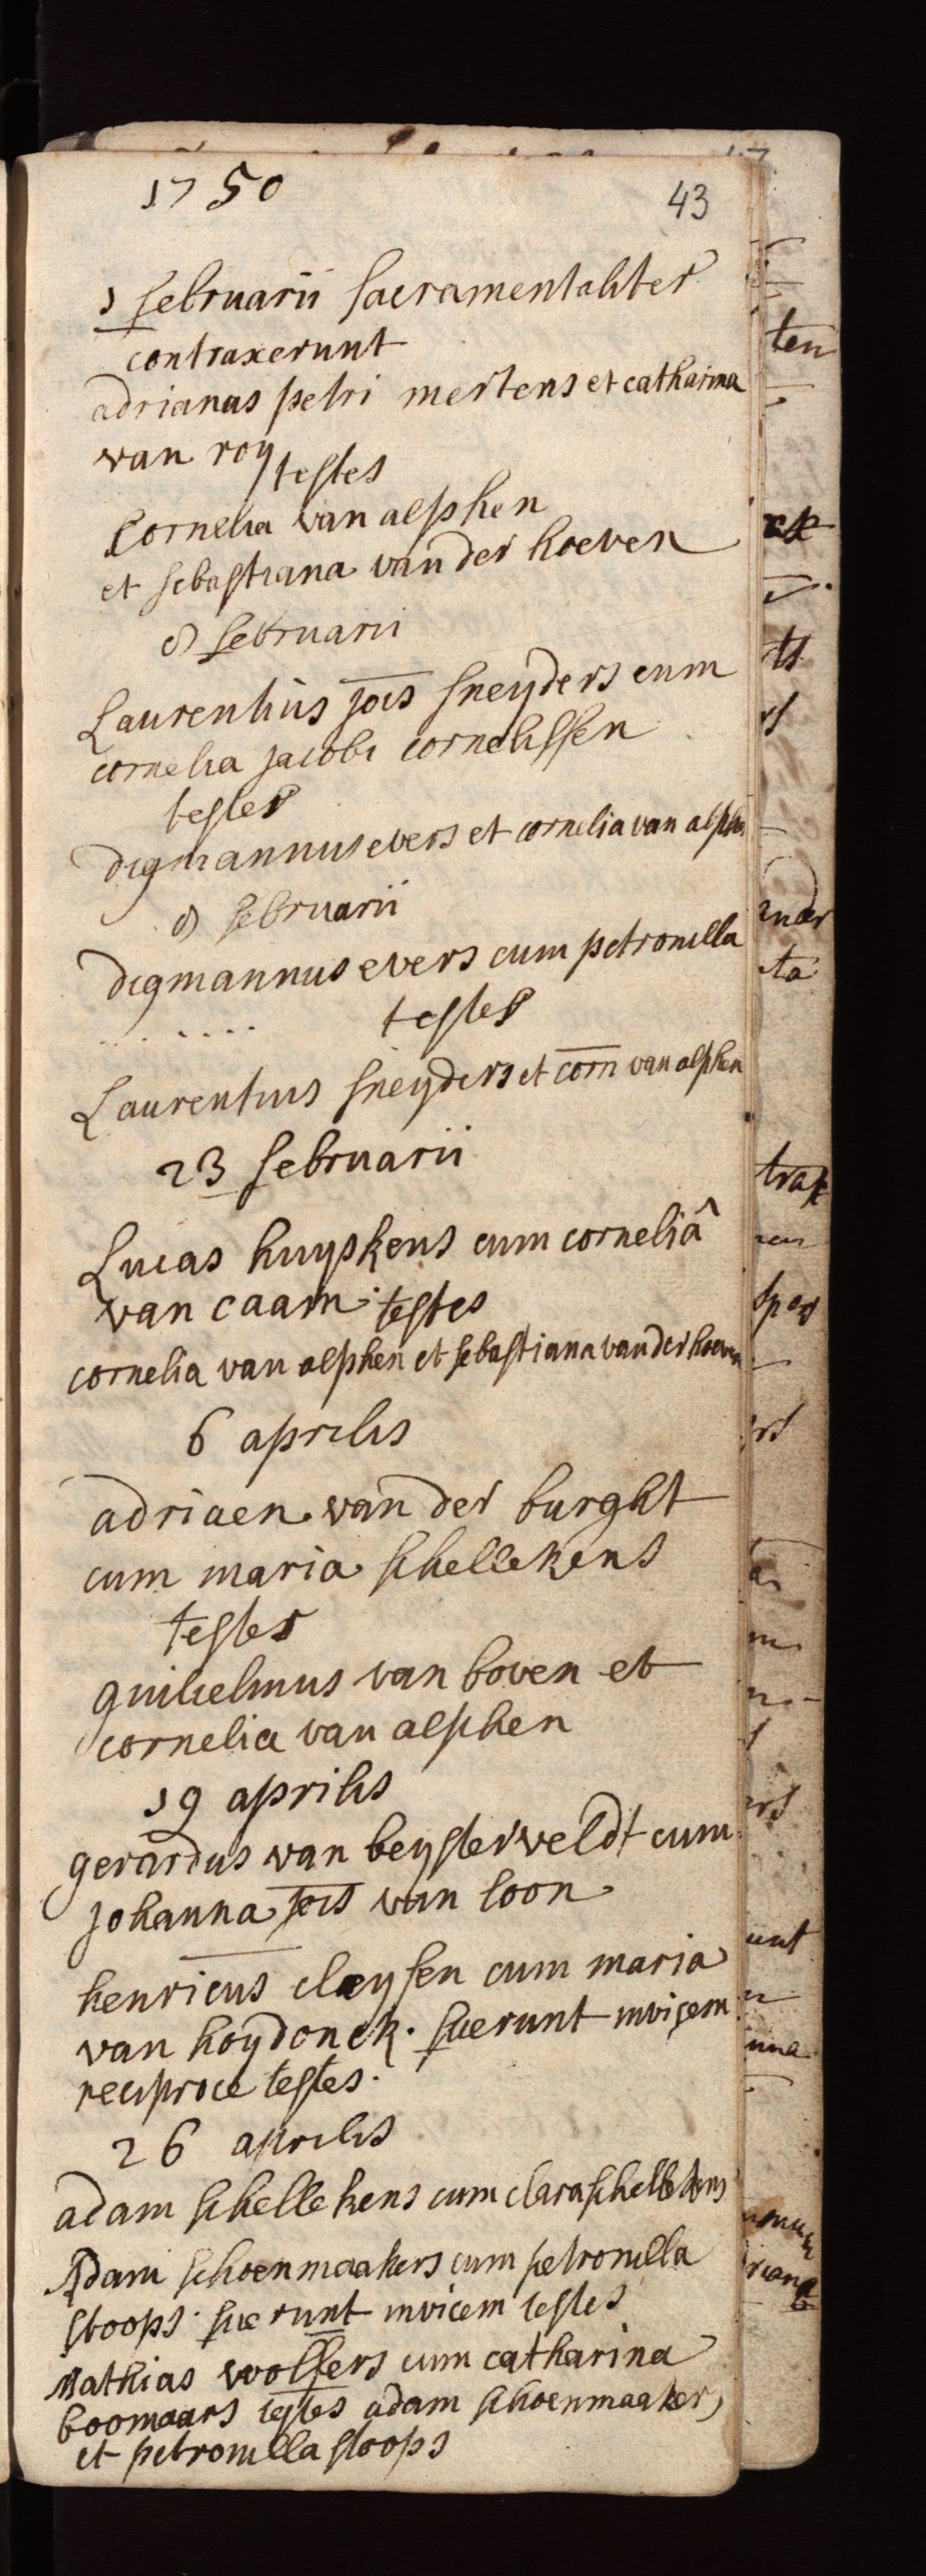 1750
43
1 februarii sacramentaliter
contraxerunt
adrianus petri mertens et catharina
van roy testes
Cornelia van alphen
et sebastiana van der hoeven
8 februarii
Laurentius jois sneyders cum
cornelia jacobi cornelissen
testes
digmannus evers et cornelia van alphen
8 februarii
digmannus evers cum petronella
. . . . . . testes
Laurentius sneyders et corn van alphen
23 februarii
Lucas huyskens cum corneliâ
van caam. testes
cornelia van alphen et sebastiana van der hoeven
6 aprilis
adriaen van der burght
cum maria schellekens
testes
guilielmus van boven et
cornelia van alphen
19 aprilis
gerardus van beysterveldt cum
johanna jois van loon
henricus claeysen cum maria
van hoydonck. fuerunt invicem
reciproce testes.
26 aprilis
adam schellekens cum clara schellekens
Adam schoenmaakers cum petronella
stoops. fuerunt invicem testes
Mathias wolfers cum catharina
boomaars testes adam schoenmaakers
et petronella stoops